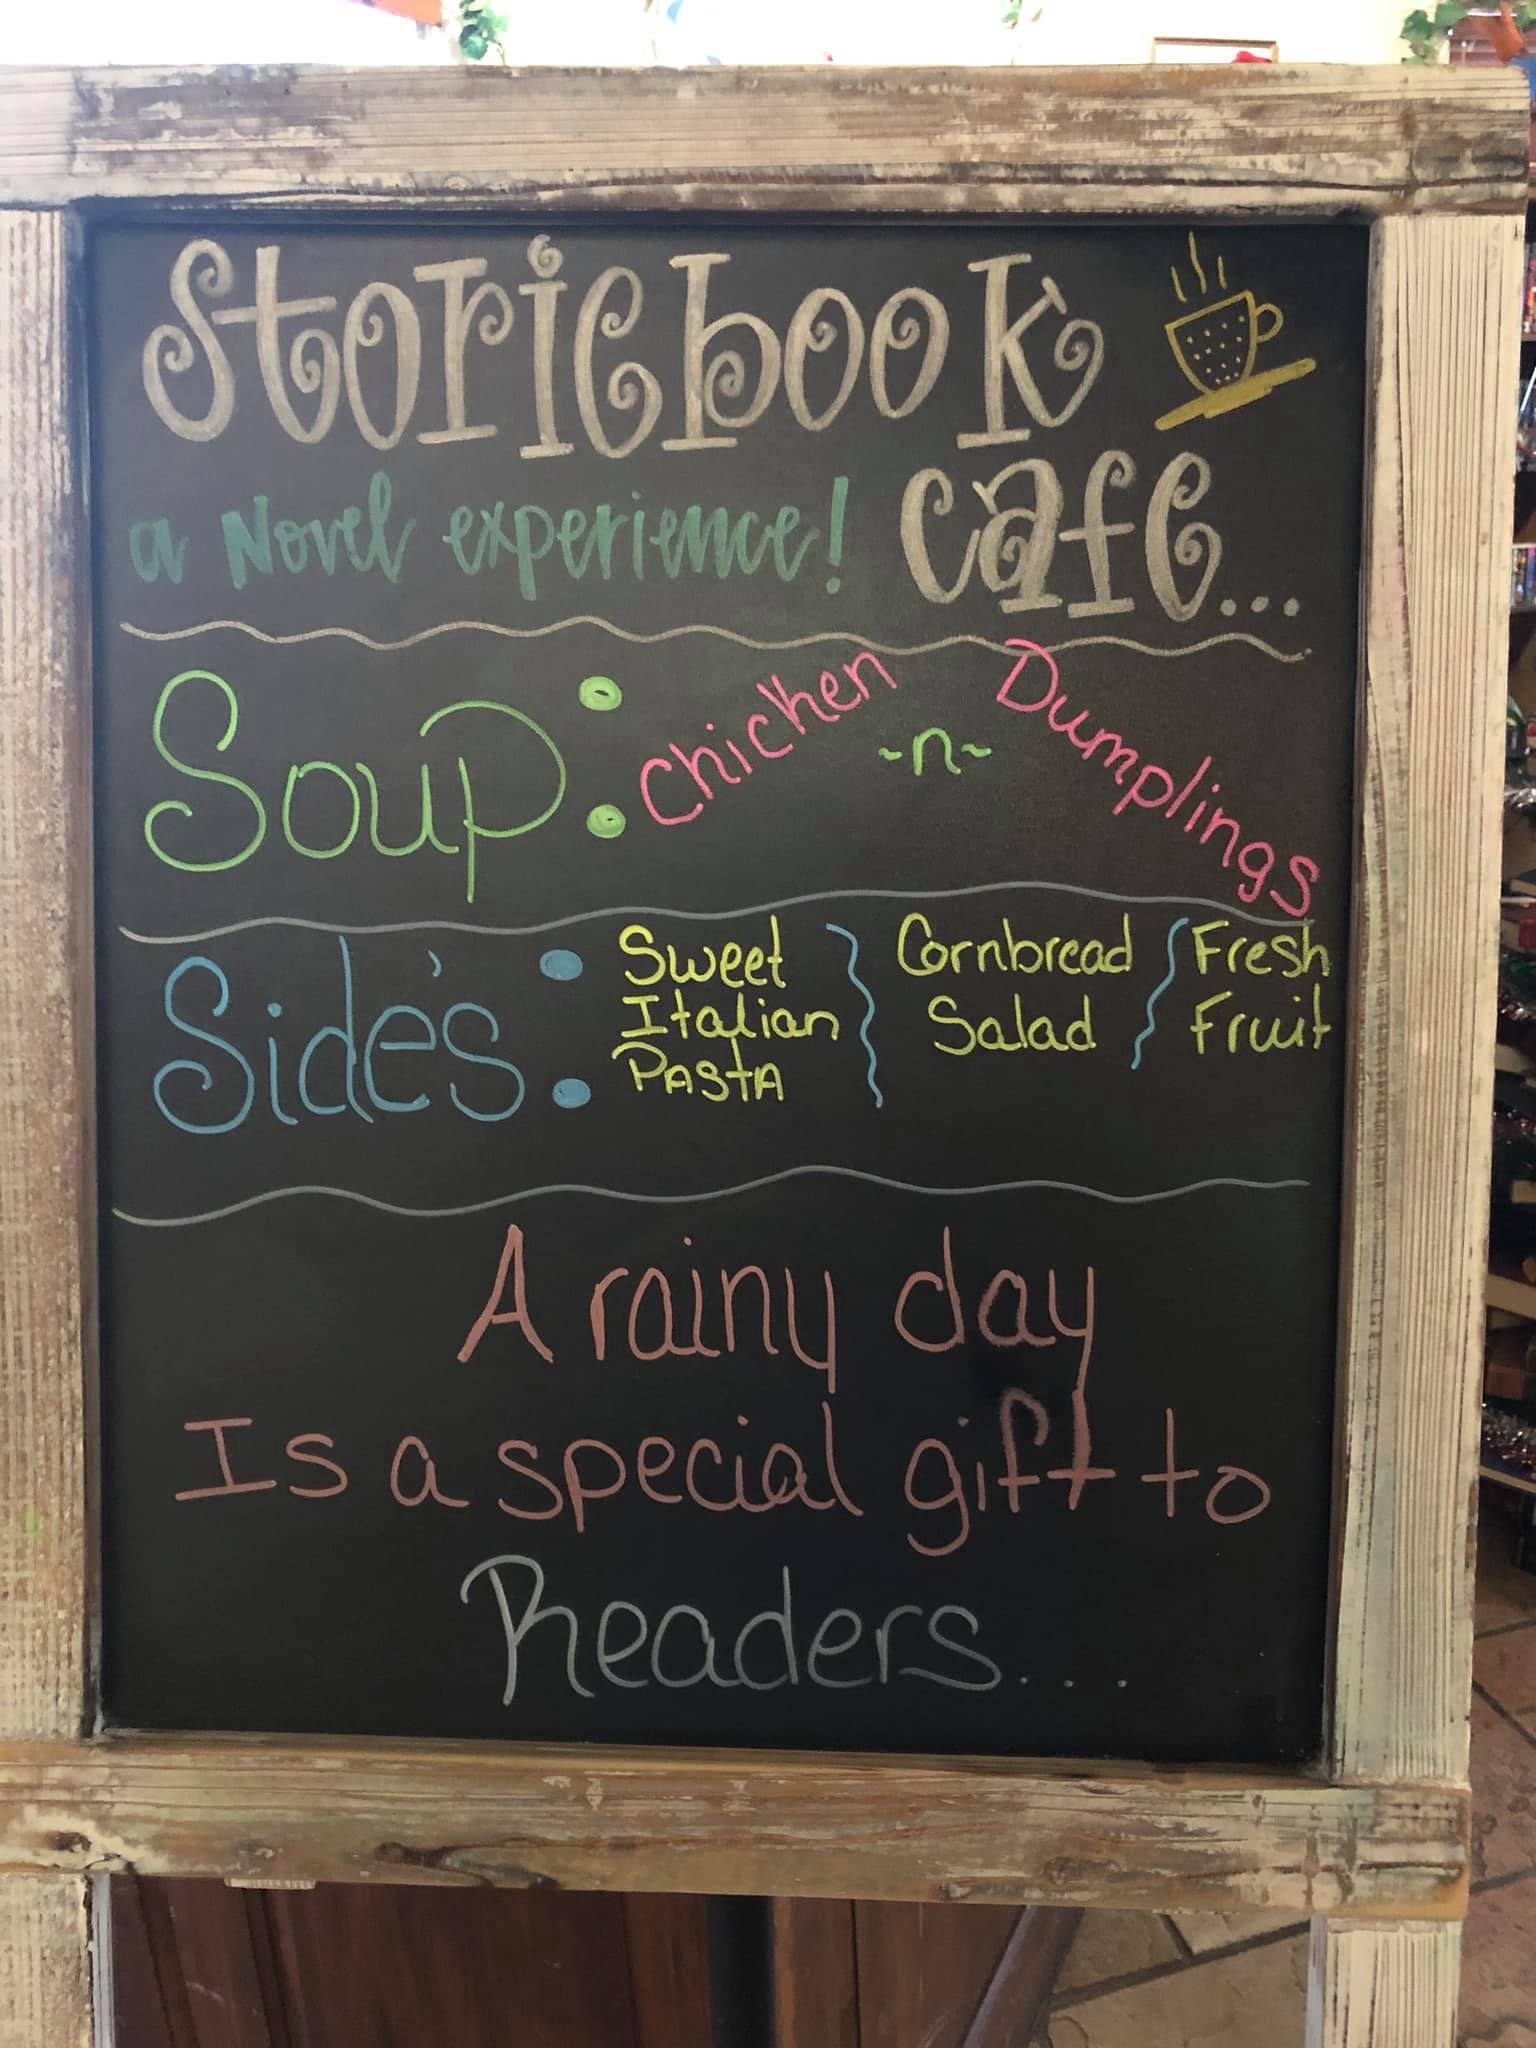 Storiebook
a Novel experience! Cafe...
Soup: Chicken -n- Dumplings
Side's: Sweet Italian PASTA } Cornbread Salad { Fresh Fruit
A rainy day
Is a special gift to
Readers....